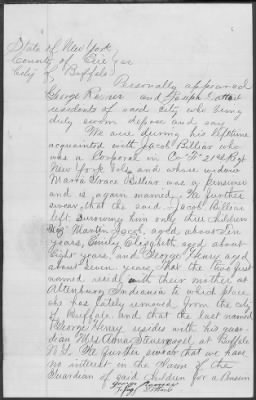 State of New York
County of Erie } ss
City of Buffalo
Personally appeared
George Reiner and Joseph
residents of said city who being
duly sworn depose and say
We are during his lifetime
acquainted with Jacob Billiar who
was a Corporal in Co "F" 21st Regt
New York Vols and whose widow
Maria Grace Billiar was a Pensioner
and is again married. We further
swear that the said Jacob Billiar
left surviving him only three children
viz Martin Jacob, aged about ten
years, Emily Elizabeth aged about
eight years, and George Henry aged
about seven years, that the two first
named reside with their mother at
Attenburg Indiana to which place
she has lately removed from the city
of Buffalo and that the last named
George Henry resides with his guar
dian Mrs Anna at Buffalo
N.Y. We further swear that we have
no interest in the claim of the
Guardian of said children for a Pension
George
Joseph